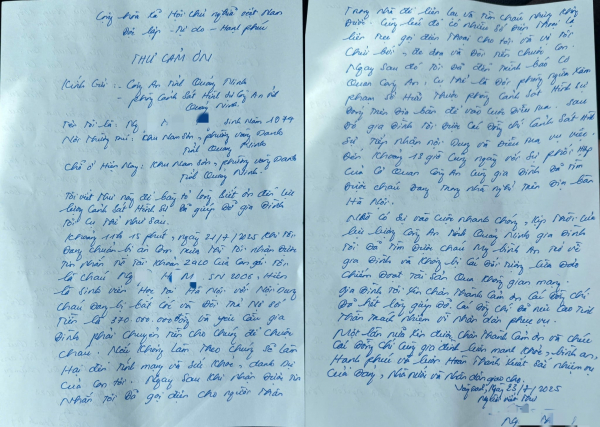 Cộng hòa Xã Hội Chủ nghĩa Việt Nam
Độc lập - Tự do - Hạnh phúc
THƯ CẢM ƠN
Kính Gửi: - Công An Tỉnh Quảng Ninh
- phòng Cảnh Sát Hình Sự Công An tỉnh
Quảng Ninh.
Tên tôi là: Ng sinh năm 1979
Nơi Thường trú: Khu Nam Sơn, phường Vàng Danh
Tỉnh Quảng Ninh
Chỗ ở Hiện Nay: Khu Nam Sơn, phường Vàng Danh
Tỉnh Quảng Ninh.
Tôi viết thư này để bày tỏ lòng biết ơn đến lực
lượng Cảnh Sát Hình Sự Đã giúp Đỡ gia Đình
Tôi Cụ Thể như Sau:
Khoảng 11h 15 phút, ngày 21/7/2025 Khi Tôi
Đang chuẩn bị ăn Cơm trưa Thì Tôi nhận Được
Tin nhắn Từ Tài Khoản ZALO Của Con gái Tôi
là cháu Ng H M SN 2006, Hiện
là Sinh viên Học Tại Hà Nội với Nội Dung
Cháu Đang bị bắt cóc và Đòi Thả Nợ Số
Tiền là 370.000.000 đồng và yêu Cầu gia
Đình phải chuyển Tiền cho Chúng để Chuộc
Cháu. Nếu Không làm Theo Chúng Sẽ làm
Hại đến Tính mạng và Sức Khỏe, danh Dự
Của Con Tôi. Ngay Sau Khi Nhận Được Tin
Nhắn Tôi Đã gọi điện cho người Thân
Trong Nhà để liên lạc với Cháu Nhưng Không
Được. Cùng lúc đó có Nhiều Số Điện Thoại lạ
liên Tục gọi đến Thoại Cho Tôi và vợ Tôi
Chửi bới, đe dọa và Đòi Tiền chuộc Con.
Ngay Sau đó Tôi Đã đến Trình báo Cơ
Quan Công An, Cụ Thể là Đội phòng ngừa Xâm
phạm Sở Hữu Thuộc phòng Cảnh Sát Hình Sự
Đóng Trên Địa bàn để vào Cuộc Điều Tra. Sau
Đó gia Đình Tôi Được Các Đồng chí Cảnh Sát Hình
Sự Tiếp Nhận nội Dung và Điều Tra vụ việc.
Đến Khoảng 18 giờ Cùng ngày với Sự phối Hợp
Của Cơ Quan Công An Cùng gia Đình Đã Tìm
Được cháu Đang Trong nhà nghỉ Trên Địa bàn
Hà Nội.
Nhờ Có Sự vào Cuộc Nhanh chóng, Kịp Thời Của
lực lượng Công An Tỉnh Quảng Ninh gia Đình
Tôi Đã Tìm Được cháu My bình An Trở về
gia Đình và Không bị Các Đối Tượng lừa Đảo
Chiếm Đoạt Tài Sản Qua Không gian mạng.
gia Đình Tôi Xin Chân Thành Cảm ơn Các Đồng chí
Đã Hết lòng giúp Đỡ Các Đồng Chí Đã nêu Cao Tinh
Thần Trách Nhiệm vì Nhân dân phục vụ.
Một lần nữa Xin được Chân Thành Cảm ơn và Chúc
Các Đồng Chí Cùng gia Đình luôn mạnh Khỏe, bình an,
Hạnh phúc và luôn Hoàn Thành Xuất Sắc Nhiệm vụ
Của Đảng, Nhà Nước và Nhân dân giao cho.
Vàng Danh, Ngày 23/7/2025
Người viết Thư
Ng